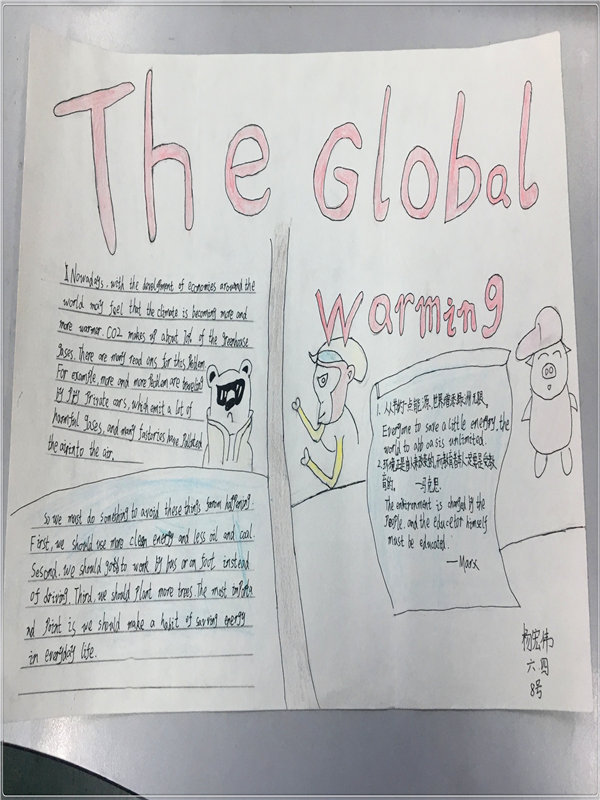 The Global
Warming
Nowadays, with the development of economies around the
world may feel that the climate is becoming more and
more warmer. CO2 makes up about lot of the greenhouse
gases. There are many read ons for this
For example, more and more are traveling
by private cars, which emit a lot of
harmful gases, and many factories have polluted
the airinto the air.
So we must do something to avoid these things from happening.
First, we should use more clean energy and less oil and coal.
Sesond. we should goto to work by bas or on foot instead
of driving. Third, we should plant more trees. The most importa
nd point is we should make a habit of savring energy
in everyday life.
1. 人人节约一点能源,世界增添绿洲无限。
Everyone to save a little energy, the
world to add oasis unlimited.
2. 环境正是由人来改变的,而教育者本人一定是受教
育的。 —马克思
The environment is changed by the
people. and the educator himself
must be educated.
—Marx
杨宏伟
六.四
8号